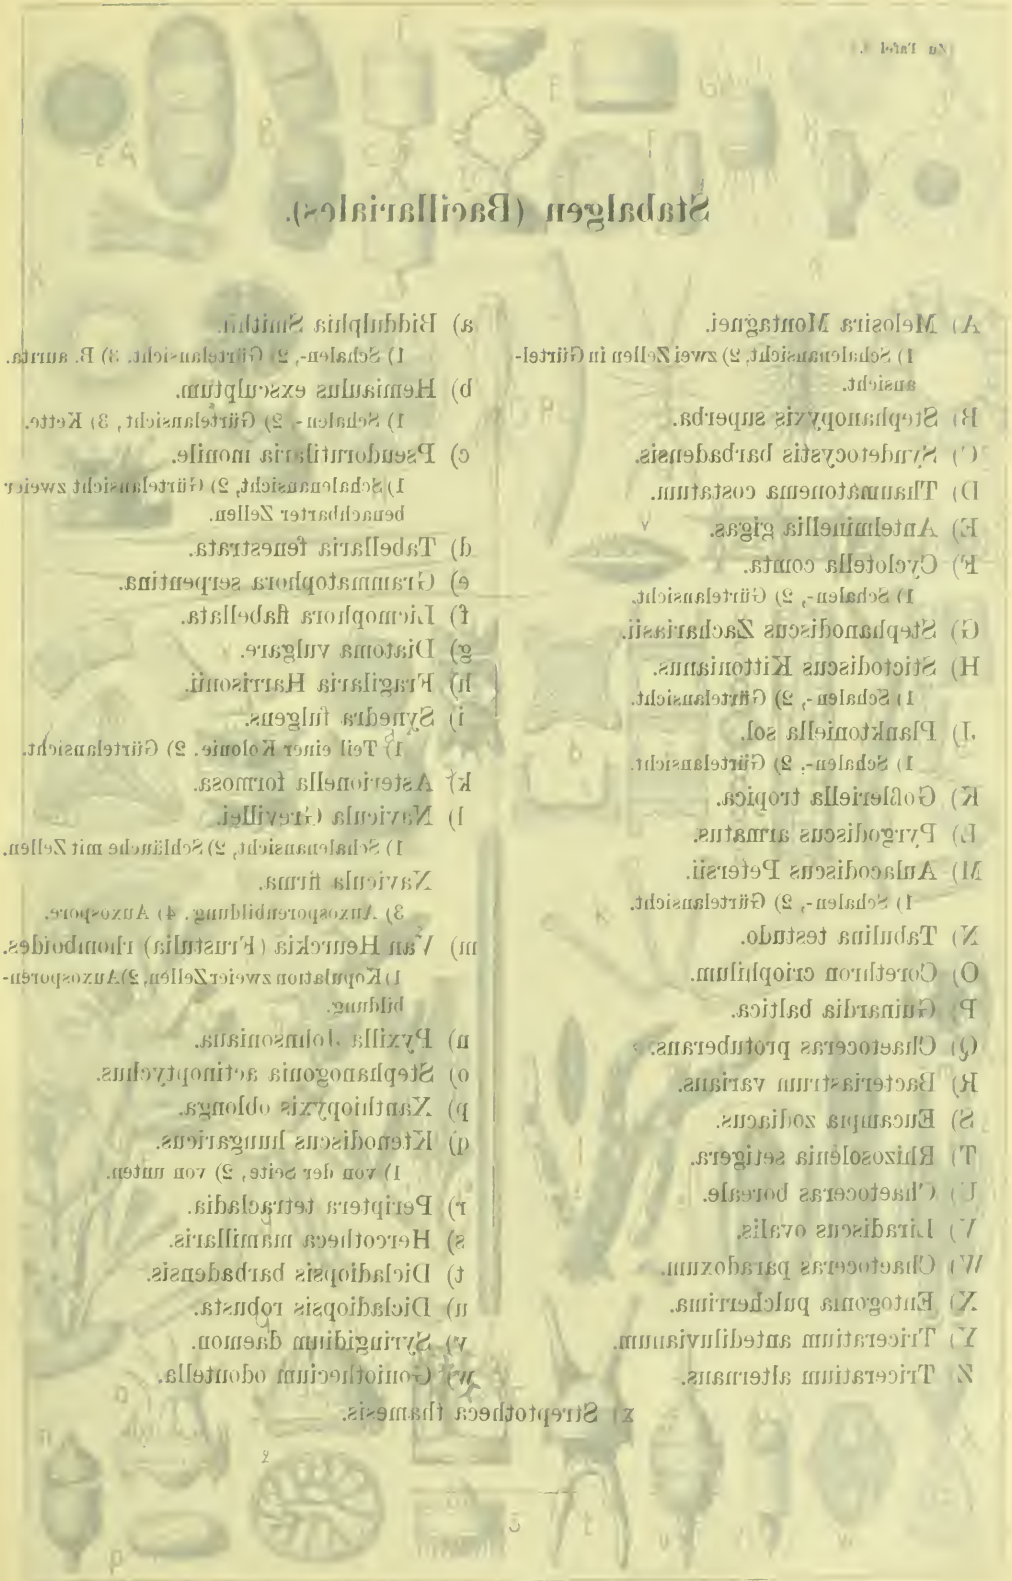 Zu Tafel
Stabalgen (Bacillariales).
A) Melosira Montagnei.
1) Schalenansicht, 2) zwei Zellen in Gürtel-
ansicht.
B) Stephanopyxis superba.
C) Syndetocystis barbadensis.
D) Thaumatonema costatum.
E) Antelminellia gigas.
F) Cyclotella comta.
1) Schalen-, 2) Gürtelansicht.
G) Stephanodiscus Zachariasii.
H) Stictodiscus Kittonianus.
1) Schalen-, 2) Gürtelansicht.
J) Planktoniella sol.
1) Schalen-, 2) Gürtelansicht.
K) Goßleriella tropica.
L) Pyrgodiscus armatus.
M) Aulacodiscus Petersii.
1) Schalen-, 2) Gürtelansicht.
N) Tabulina testudo.
O) Corethron criophilum.
P) Guinardia baltica.
Q) Chaetoceras protuberans.
R) Bacteriastrum varians.
S) Eucampia zodiacus.
T) Rhizosolenia setigera.
U) Chaetoceras boreale.
V) Liradiscus ovalis.
W) Chaetoceras paradoxum.
X) Entogonia pulcherrima.
Y) Triceratium antediluvianum.
Z) Triceratium alternans.
a) Biddulphia Smithii.
1) Schalen-, 2) Gürtelansicht. 3) B. aurita.
b) Hemiaulus exsculptum.
1) Schalen-, 2) Gürtelansicht, 3) Kette.
c) Pseudorutilaria monile.
1) Schalenansicht, 2) Gürtelansicht zweier
benachbarter Zellen.
d) Tabellaria fenestrata.
e) Grammatophora serpentina.
f) Licmophora flabellata.
g) Diatoma vulgare.
h) Fragilaria Harrisonii.
i) Synedra fulgens.
1) Teil einer Kolonie. 2) Gürtelansicht.
k) Asterionella formosa.
l) Navicula Grevillei.
1) Schalenansicht, 2) Schläuche mit Zellen.
Navicula firma.
3) Auxosporenbildung. 4) Auxospore.
m) Van Heurckia (Frustulia) rhomboides.
1) Kopulation zweier Zellen, 2) Auxosporen-
bildung.
n) Pyxilla Johnsoniana.
o) Stephanogonia actinoptychus.
p) Xanthiopyxis oblonga.
q) Ktenodiscus hungaricus.
1) von der Seite, 2) von unten.
r) Periptera tetracladia.
s) Hercotheca mamillaris.
t) Dicladiopsis barbadensis.
u) Dicladiopsis robusta.
v) Syringidium daemon.
w) Goniothecium odontella.
x) Streptotheca thamesis.